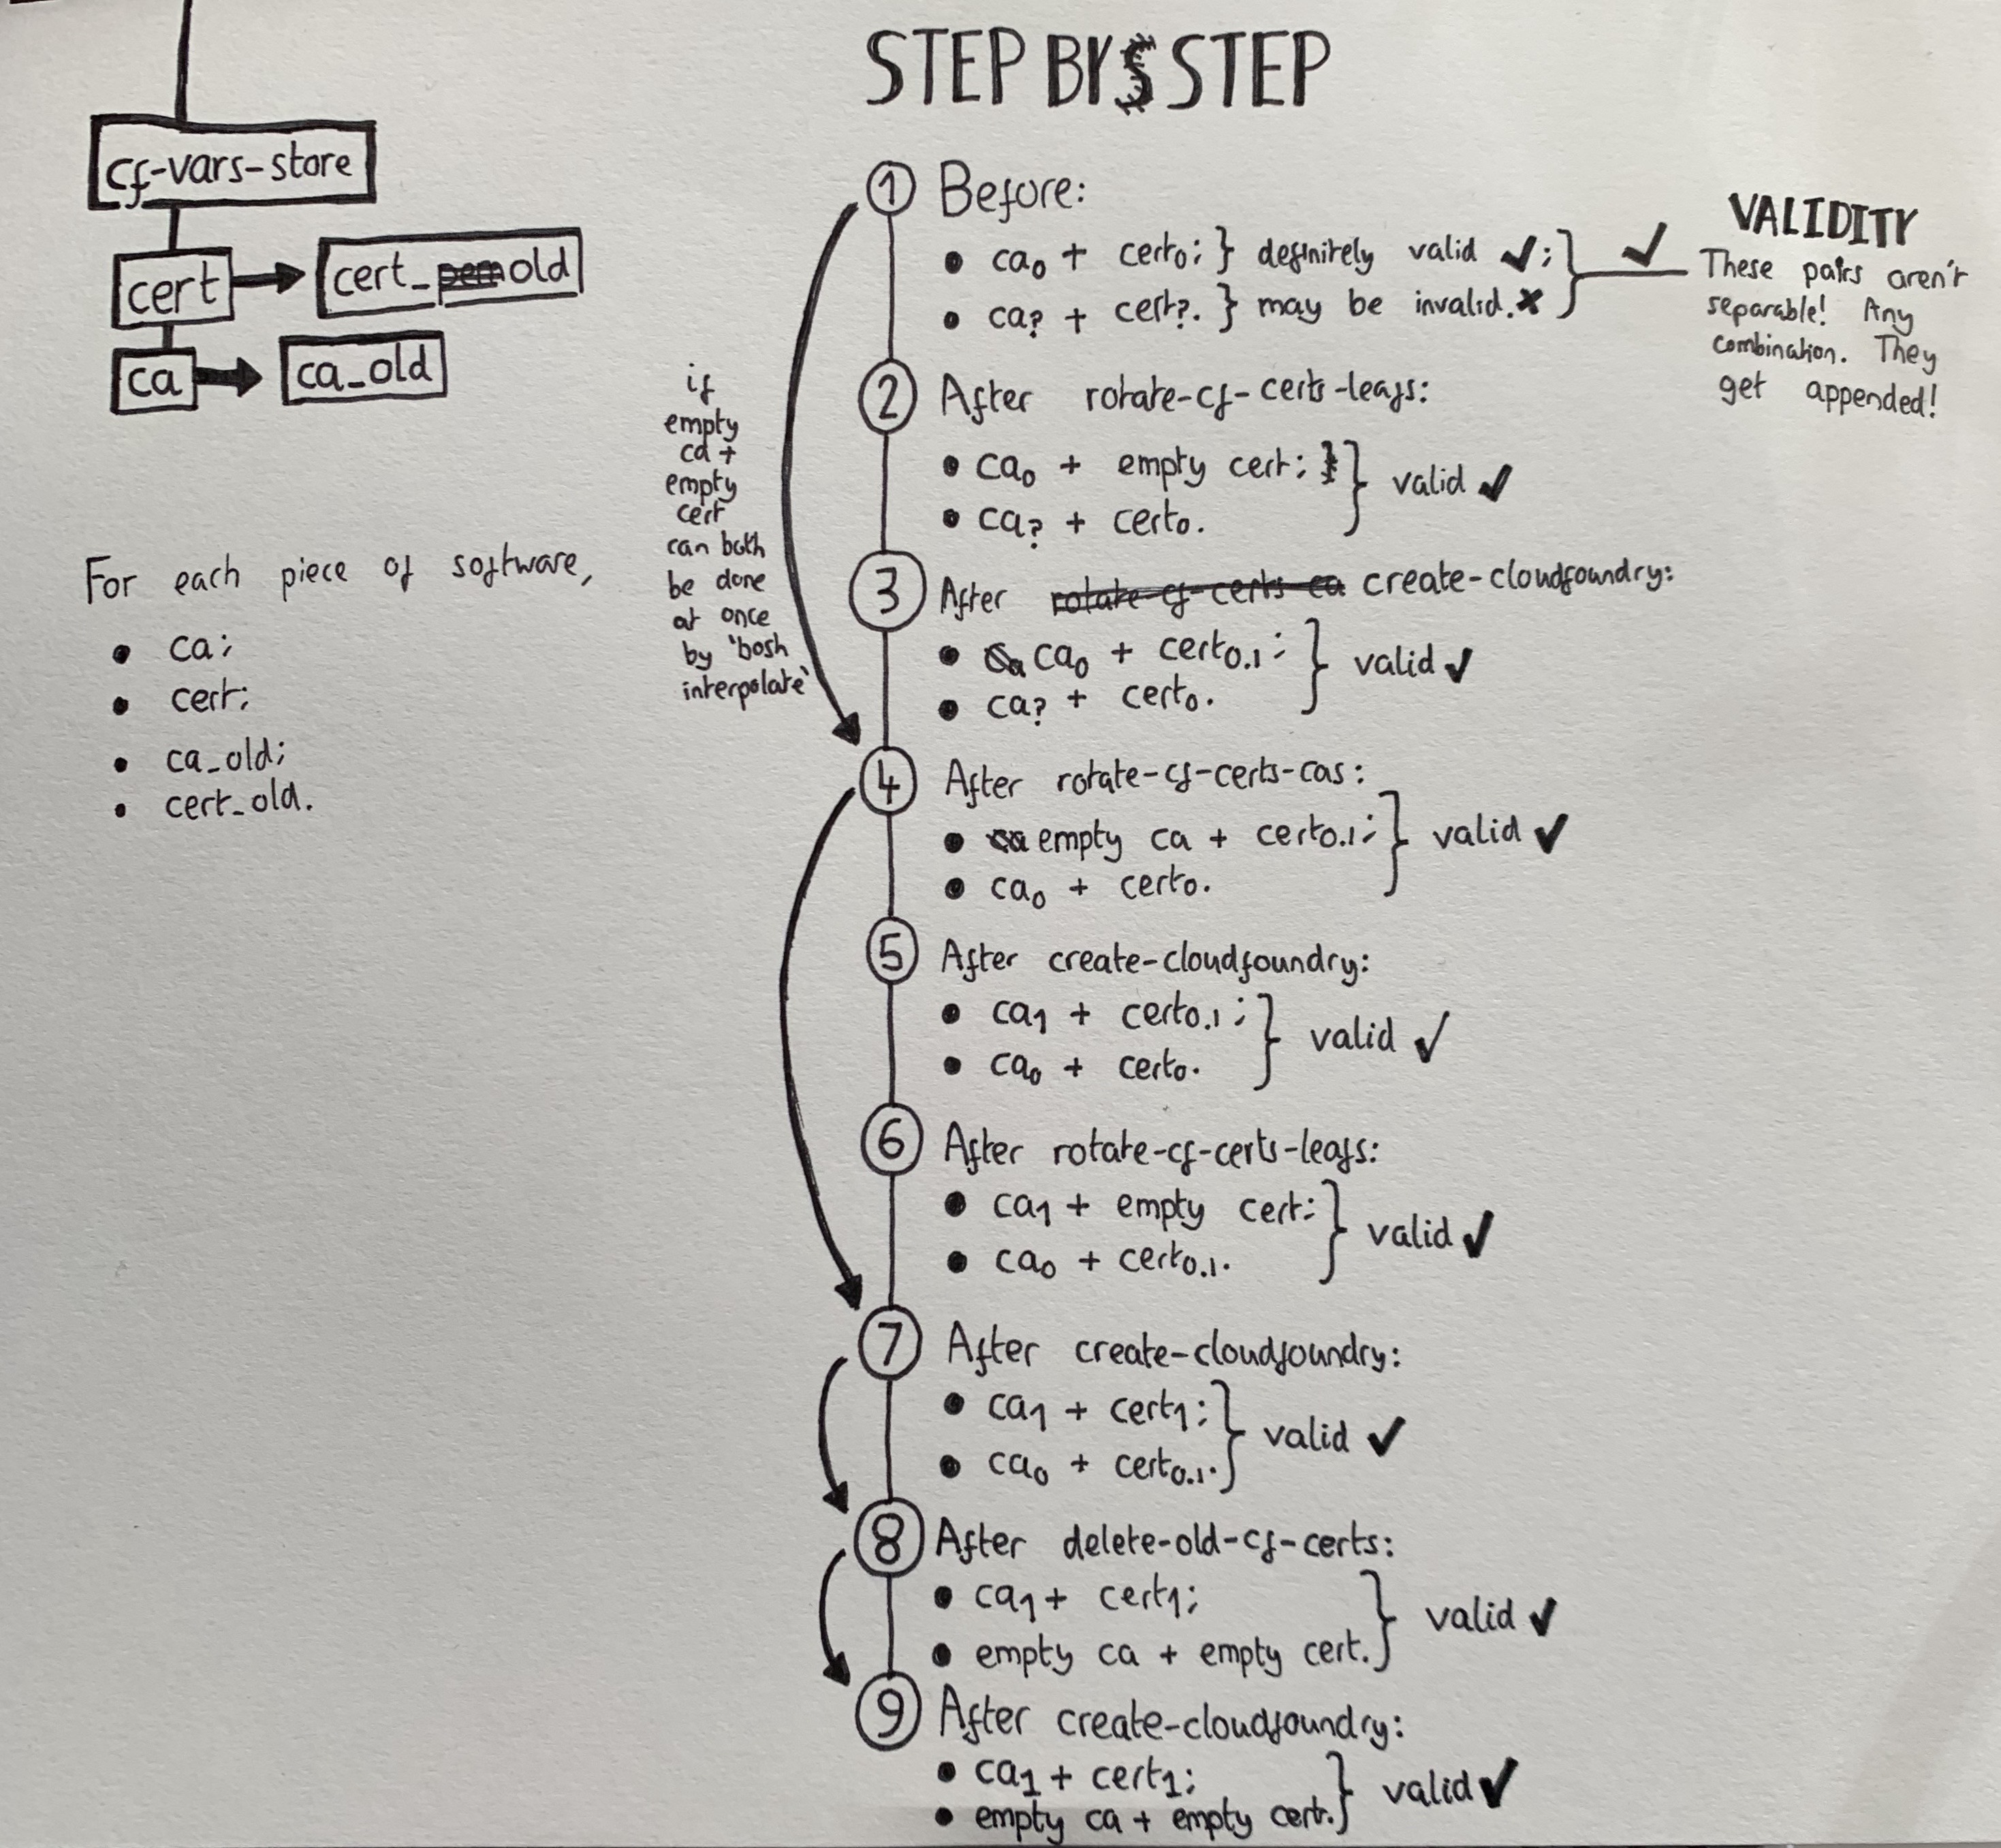 STEP BY STEP
cf-vars-store
cert
cert_old
ca
ca_old
For each piece of software,
• ca;
• cert;
• ca_old;
• cert_old.
if
empty
ca +
empty
cert
can both
be done
at once
by 'bosh
interpolate'
1 Before:
• ca0 + cert0; } definitely valid ✔;
• ca? + cert?. } may be invalid. ✘
✓
VALIDITY
These pairs aren't
separable! Any
combination. They
get appended!
2 After rotate-cf-certs-leafs:
• ca0 + empty cert; } valid ✔
• ca? + cert0.
3 After rotate-cf-certs-ca create-cloudfoundry:
• ca0 + cert0.1; } valid ✔
• ca? + cert0.
4 After rotate-cf-certs-cas:
• empty ca + cert0.1; } valid ✔
• ca0 + cert0.
5 After create-cloudfoundry:
• ca1 + cert0.1; } valid ✓
• ca0 + cert0.
6 After rotate-cf-certs-leafs:
• ca1 + empty cert; } valid ✔
• ca0 + cert0.1.
7 After create-cloudfoundry:
• ca1 + cert1; } valid ✔
• ca0 + cert0.1.
8 After delete-old-cf-certs:
• ca1 + cert1; } valid ✔
• empty ca + empty cert.
9 After create-cloudfoundry:
• ca1 + cert1; } valid ✔
• empty ca + empty cert.